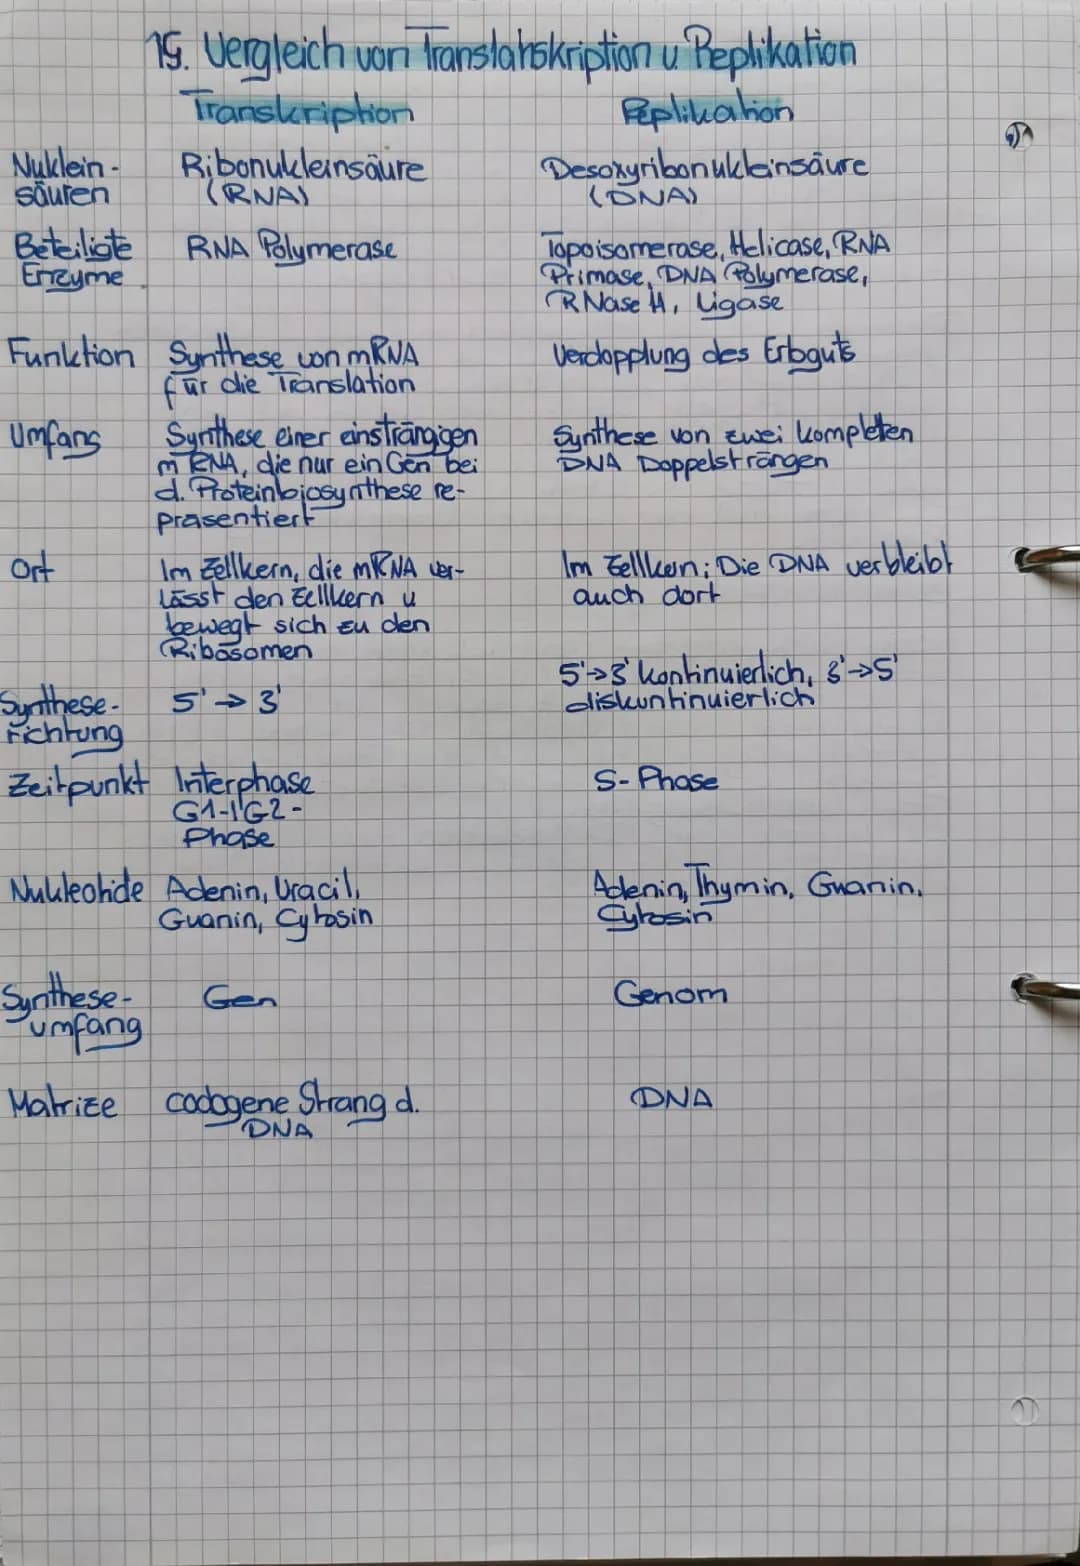 15. Vergleich von Translahskription u. Replikation
Transkription Replikation
Nuklein- Ribonukleinsäure Desoxyribonukleinsäure
säuren (RNA) (DNA)
Beteiligte RNA Polymerase Topoisomerase, Helicase, RNA
Enzyme Primase, DNA Polymerase,
RNase H, Ligase
Funktion Synthese von mRNA Verdopplung des Erbguts
für die Translation
Umfang Synthese einer einsträngigen Synthese von zwei kompletten
mRNA, die nur ein Gen bei DNA Doppelsträngen
d. Proteinbiosynthese re-
präsentiert
Ort Im Zellkern, die mRNA ver- Im Zellkern; Die DNA verbleibt
lässt den Zellkern u auch dort
bewegt sich zu den
Ribosomen
5'→3' kontinuierlich, 3'→5'
Synthese- 5' → 3' diskontinuierlich
richtung
Zeitpunkt Interphase S-Phase
G1-/G2-
Phase
Nukleotide Adenin, Uracil, Adenin, Thymin, Guanin,
Guanin, Cytosin Cytosin
Synthese- Gen Genom
umfang
Matrize codogene Strang d. DNA
DNA